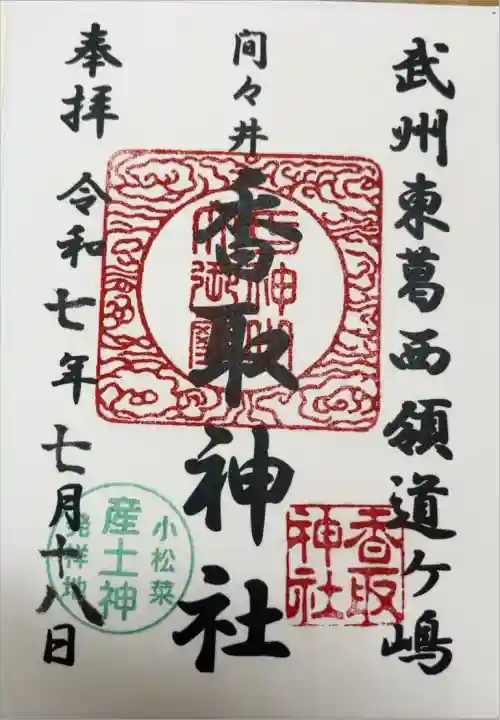 武州東葛西領道ヶ嶋
間々井
香取神社
奉拝 令和七年七月十八日
香取
神社
小松菜
産土神
発祥地